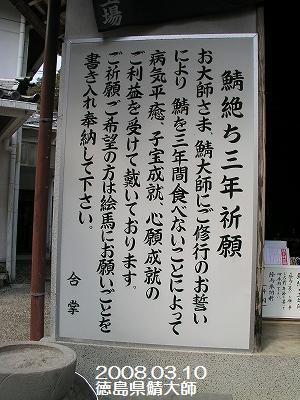 場
鯖絶ち三年祈願
お大師さま、鯖大師にご修行のお誓い
により 鯖を三年間食べないことによって
病気平癒、子宝成就、心願成就の
ご利益を受けて戴いております。
ご祈願ご希望の方は絵馬にお願いごとを
書き入れ奉納して下さい。
合掌
2008.03.10
徳島県鯖大師